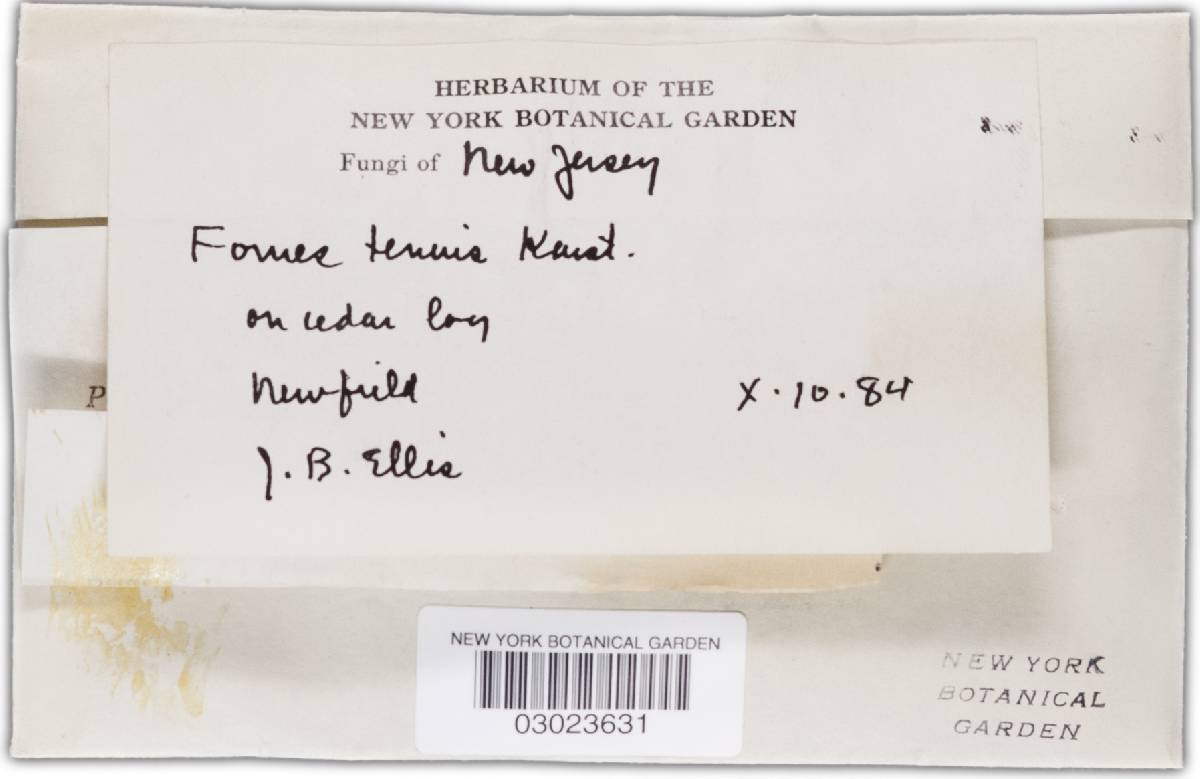 HERBARIUM OF THE
NEW YORK BOTANICAL GARDEN
Fungi of New Jersey
Fomes tenuis Karst.
on cedar log
Newfield X.10.84
J. B. Ellis
P
NEW YORK BOTANICAL GARDEN
03023631
NEW YORK
BOTANICAL
GARDEN